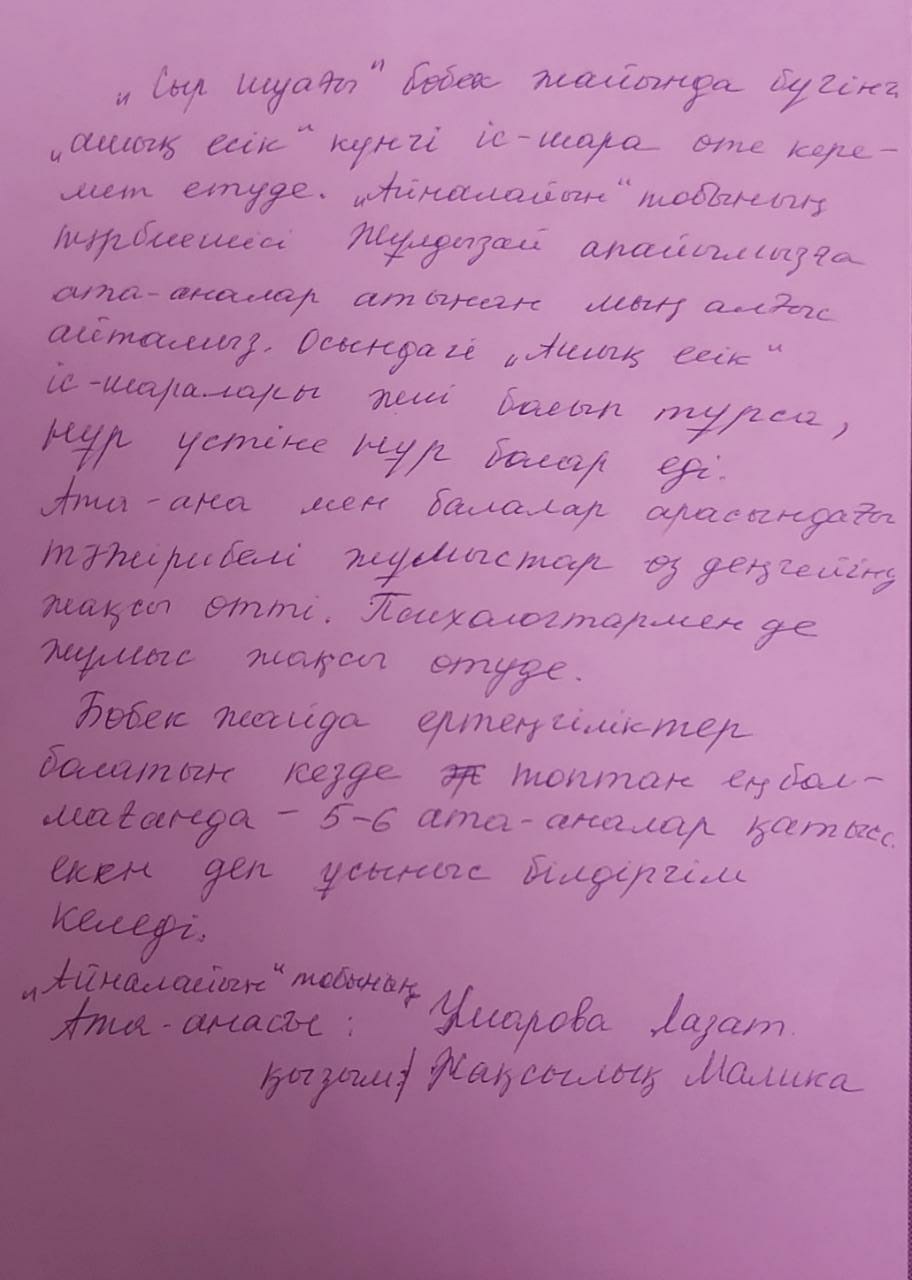 „Сыр шуағы" бөбек жайында бүгінгі
„ашық есік" күнгі іс-шара өте кере-
мет өтуде. „Айналайын" тобының
тәрбиешісі Жұлдызай апайымызға
ата-аналар атынан мың алғыс
айтамыз. Осындагі „Ашық есік"
іс-шаралары жиі болып тұрса,
нұр үстіне нұр болар еді.
Ата-ана мен балалар арасындағы
тәжірибелі жұмыстар өз деңгейінде
жақсы өтті. Психологтармен де
жұмыс жақсы өтуде.
Бөбек жайда ертеңгіліктер
болатын кезде топтан ең бол-
мағанда - 5-6 ата-аналар қатысса
екен деп ұсыныс білдіргім
келеді.
„Айналайын" тобының
Ата-анасы: Умарова Лазат.
қызым: Жақсылық Малика